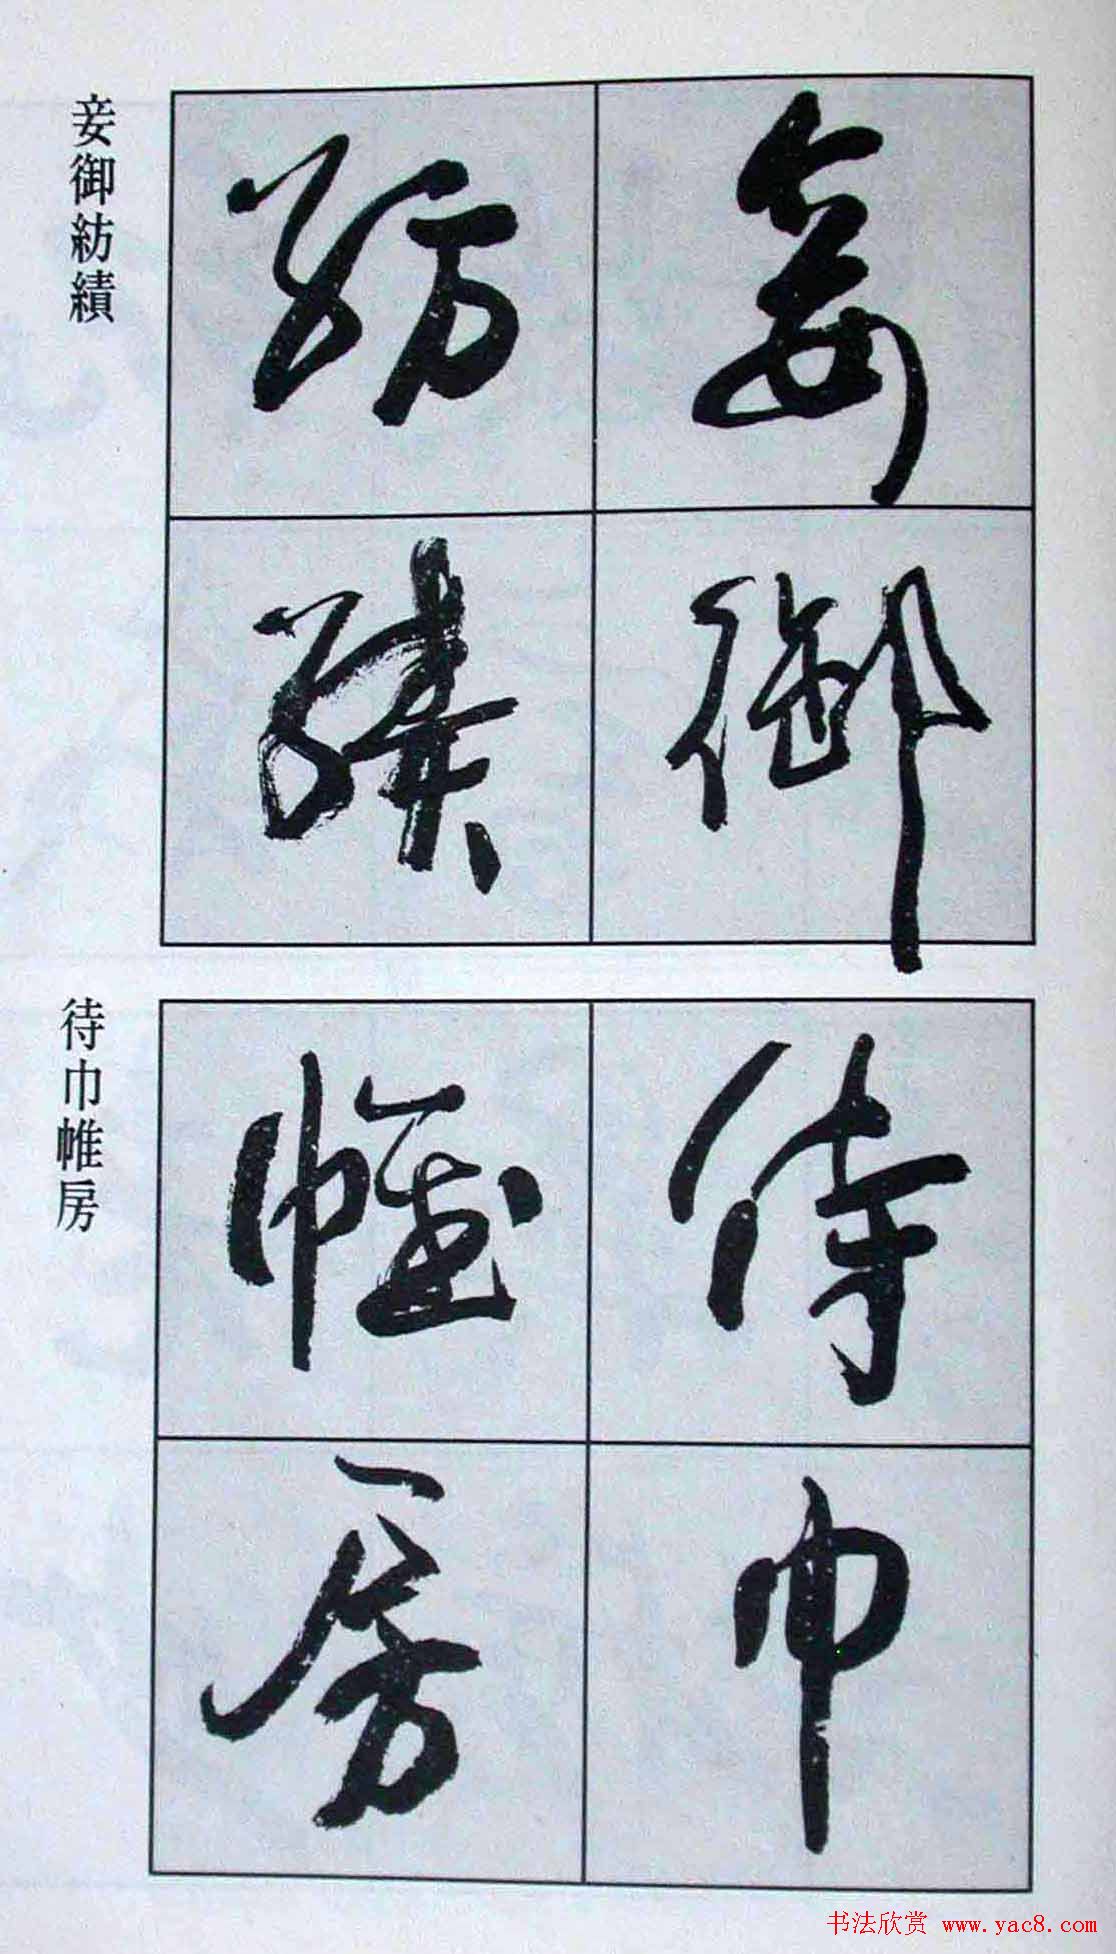 妾御
紡績
妾御紡績
侍巾
帷房
待巾帷房
书法欣赏 www.yac8.com